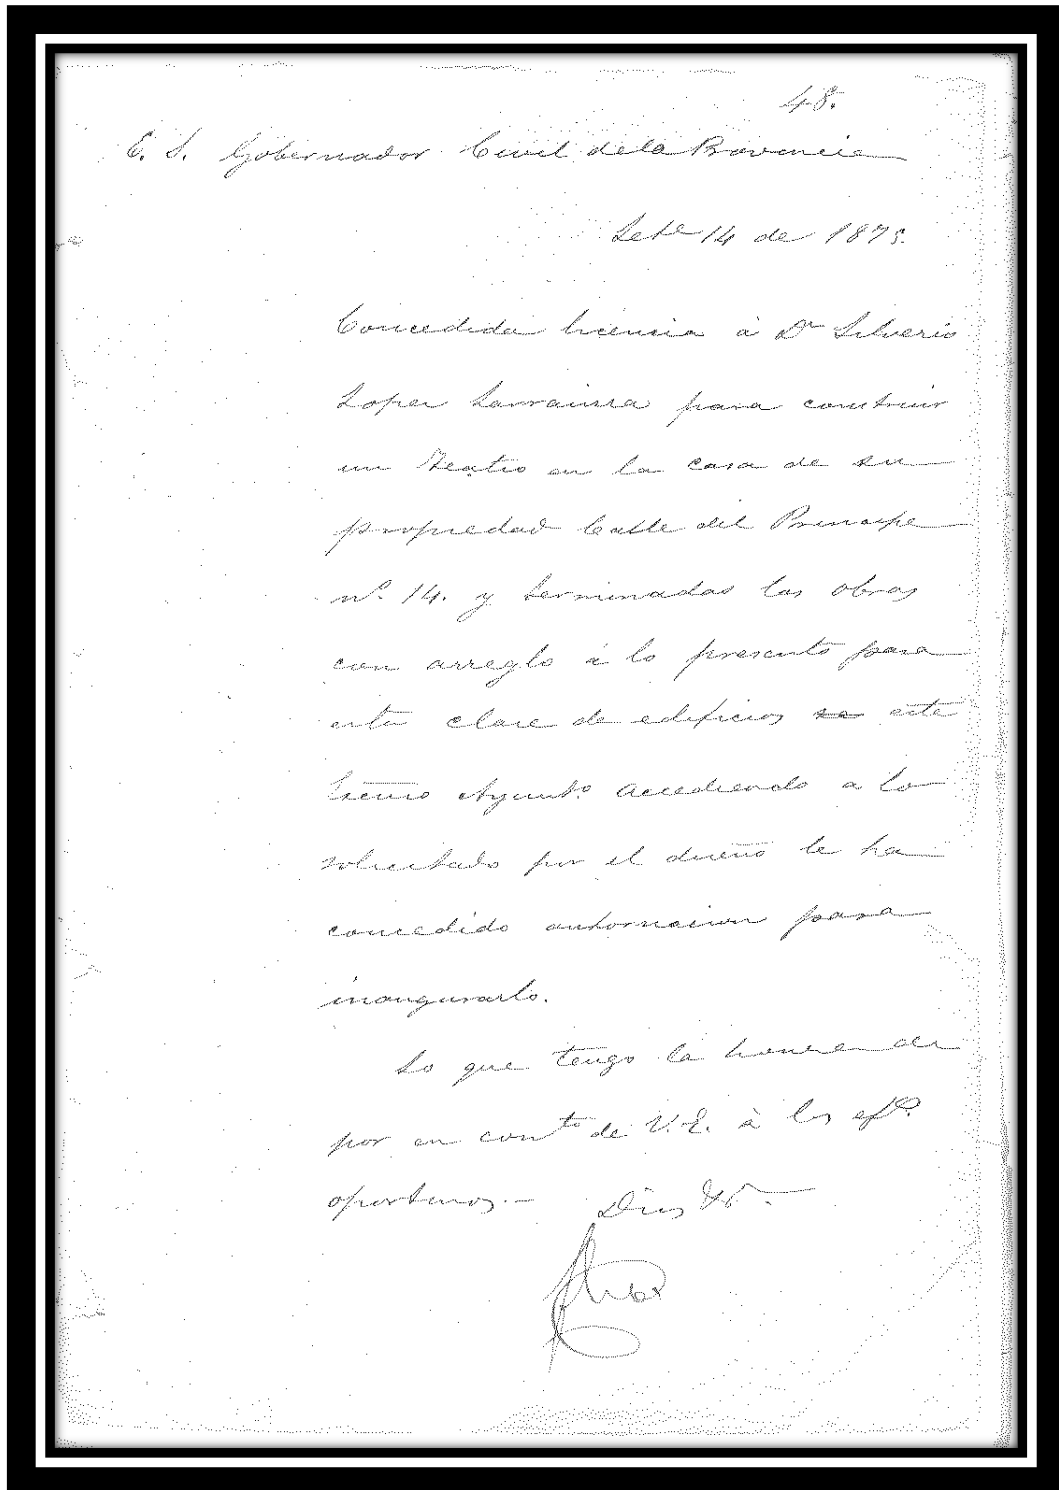 48.
E. S. Gobernador Civil de la Provincia
Setе 14 de 1875.
Concedida licencia á Dn Silverio
Lopez Larrainza para construir
un Teatro en la casa de su
propiedad Calle del Principe
nº 14. y terminadas las obras
con arreglo á lo prescrito para
esta clase de edificios se este
Excmo Ayunto accediendo a lo
solicitado por el dueño le ha
concedido autorizacion para
inaugurarlo.
Lo que tengo la honra de
por en conto de V. E. á los efs.
oportunos.— Dios